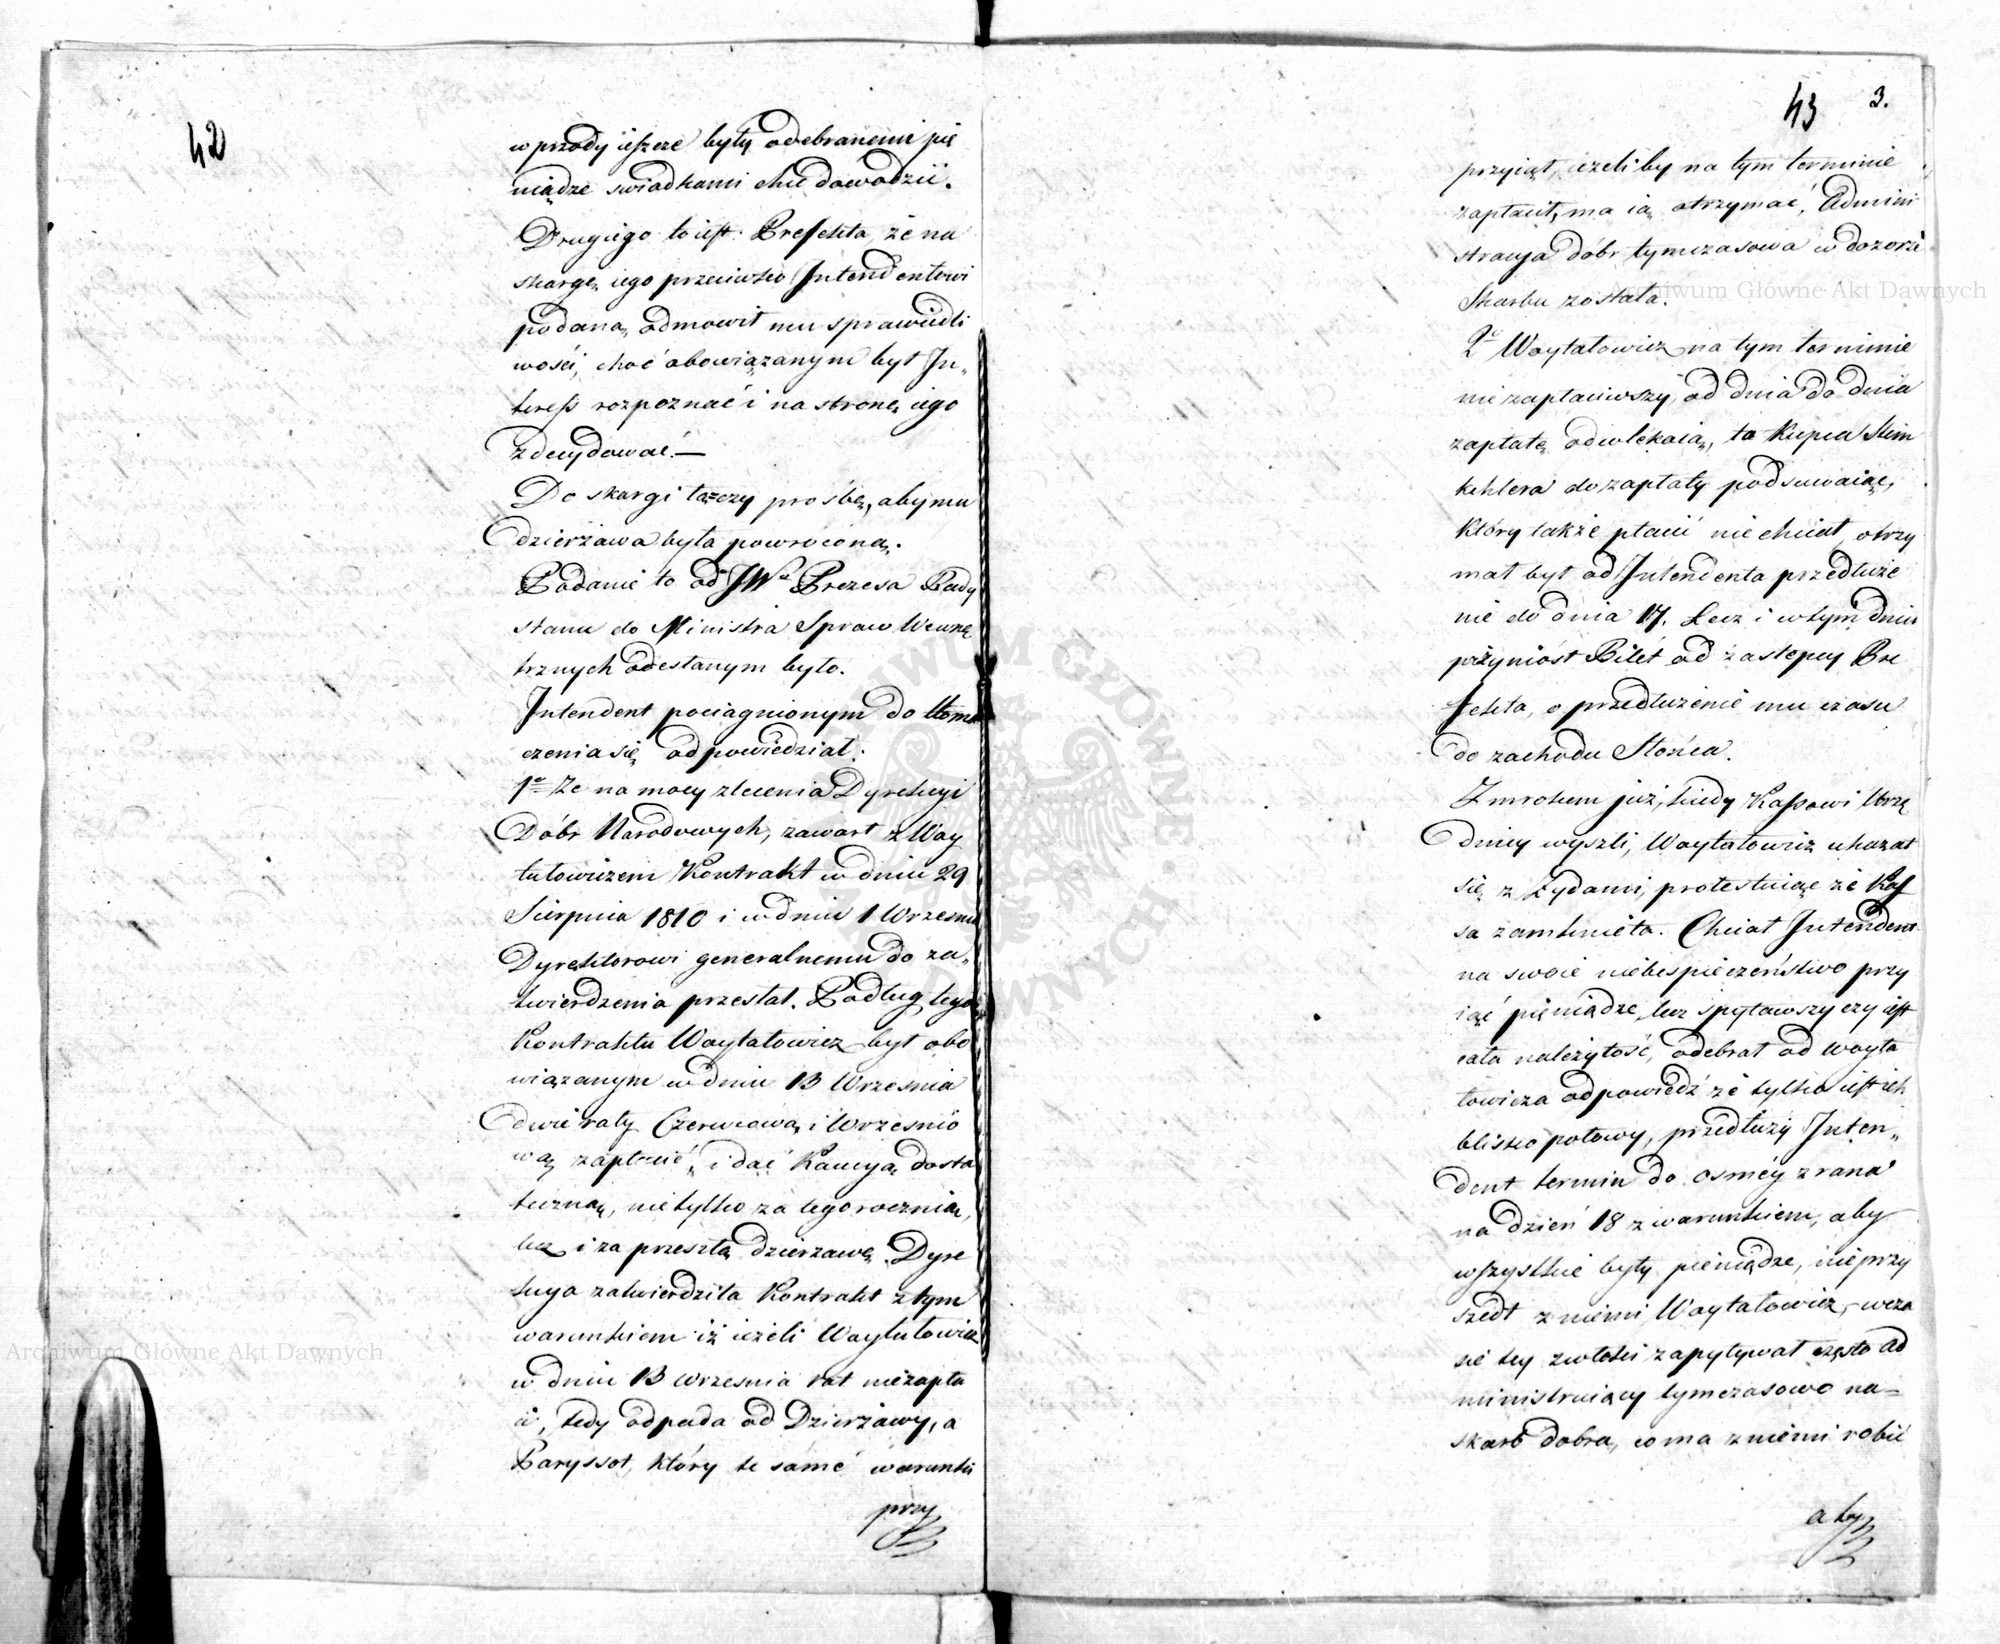 42
wprzody ieszcze były odebranemi pie
niądze swiadkami chce dowodzić.
Drugiego to iest: Prefekta że na
skargę iego przeciwko Intendentowi
podaną, odmowił mu sprawiedli
wości, choć obowiązanym był In„
teress rozpoznać i na stronę iego
zdecydować. —
Do skargi łączy prośbę, aby mu
dzierżawa była powróconą.
Podanie to od JWo Prezesa Rady
stanu do Ministra Spraw Wewnę
trznych odesłanym było.
Intendent pociągnionym do tłoma
czenia się odpowiedział:
1o Że na mocy zlecenia Dyrekcyi
Dóbr Narodowych, zawarł z Woy
tatowiczem Kontrakt w dniu 29
Sierpnia 1810 i w dniu 1 Wrzesnia
Dyrektorowi generalnemu do za„
twierdzenia przesłał. Podług tego
Kontraktu Woytatowicz był obo
wiązanym w dniu 13 Wrzesnia
dwie raty Czerwcową i Wrzesnio
wą zapłacić, i dać Kaucyą dosta
teczną, nie tylko za tegorocznią,
lecz i za przeszłą dzierzawę. Dyre
kcya zatwierdziła Kontrakt z tym
warunkiem iż ieżeli Woytatowicz
w dniu 13 Wrzesnia rat niezapła
ci, tedy odpada od Dzierżawy, a
Paryssot, który te same warunki
przy
43 3.
przyiął, ieżeli by na tym terminie
zapłacił, ma ią otrzymać, Admini
stracya dóbr tymczasowa w dozorze
Skarbu została.
2o Woytatowicz na tym terminie
niezapłaciwszy, od dnia do dnia
zapłatę odwlekaią, to Kupca Stein
kehlera do zapłaty podsuwaiąc,
który także płacić nie chciał, otrzy
mał był od Intendenta przedłuże
nie do dnia 17. Lecz i w tym dniu
przyniósł Bilet od zastępcy Pre
fekta, o przedłużenie mu czasu
do zachodu Słońca.
Zmrokem już, kiedy Kassowi Urzę
dnicy wyszli, Woytatowicz ukazał
się z Żydami, protestuiąc że Kas
sa zamknięta. Chciał Intendent
na swoie niebespieczeństwo przy
iąć pieniądze, lecz spytawszy czy iest
cała należytość, odebrał od Woyta
towicza odpowiedź że tylko iest ich
blisko połowy, przedłuży Inten„
dent termin do osméy z rana
na dzień 18 z warunkiem, aby
wszystkie były pieniądze, nie przy
szedł z niemi Woytatowicz, w cza
sie tey zwłoki zapytywał często Ad
ministruiący tymczasowo na=
skarb dobra, co ma z niemi robić
aby
Archiwum Główne Akt Dawnych
Archiwum Główne Akt Dawnych
ARCHIWUM GŁÓWNE AKT DAWNYCH